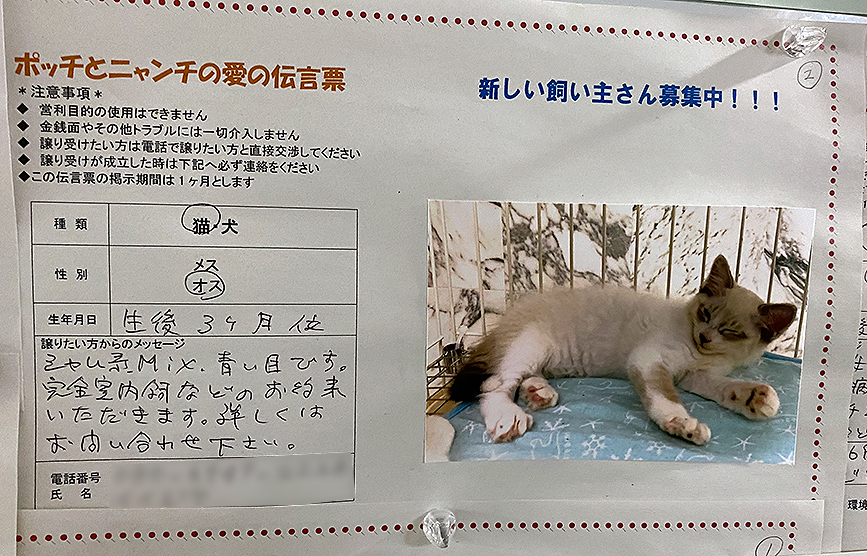 ポッチとニャンチの愛の伝言票
＊注意事項＊
◆ 営利目的の使用はできません
◆ 金銭面やその他トラブルには一切介入しません
◆ 譲り受けたい方は電話で譲りたい方と直接交渉してください
◆ 譲り受けが成立した時は下記へ必ず連絡をください
◆この伝言票の掲示期間は1ヶ月とします
種 類 猫・犬
性 別 メス
オス
生年月日 生後 3ヶ月 位
譲りたい方からのメッセージ
シャム系Mix. 青い目です。
完全室内飼などのお約束
いただきます。詳しくは
お問い合わせ下さい。
電話番号
氏 名
新しい飼い主さん募集中！！！
2
1
環境